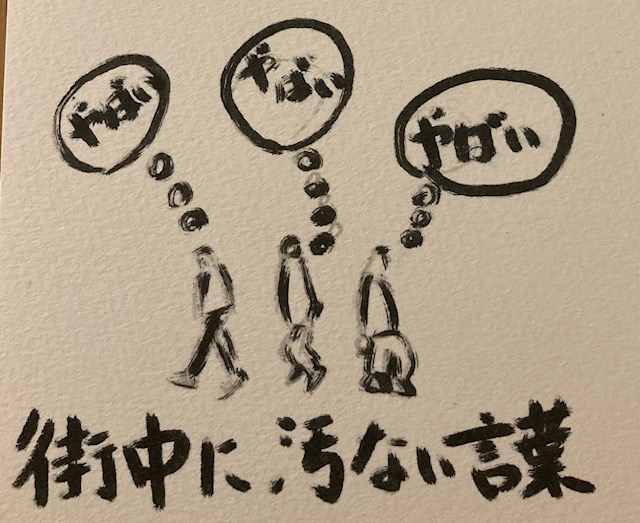 やばい
やばい
やばい
街中に汚ない言葉